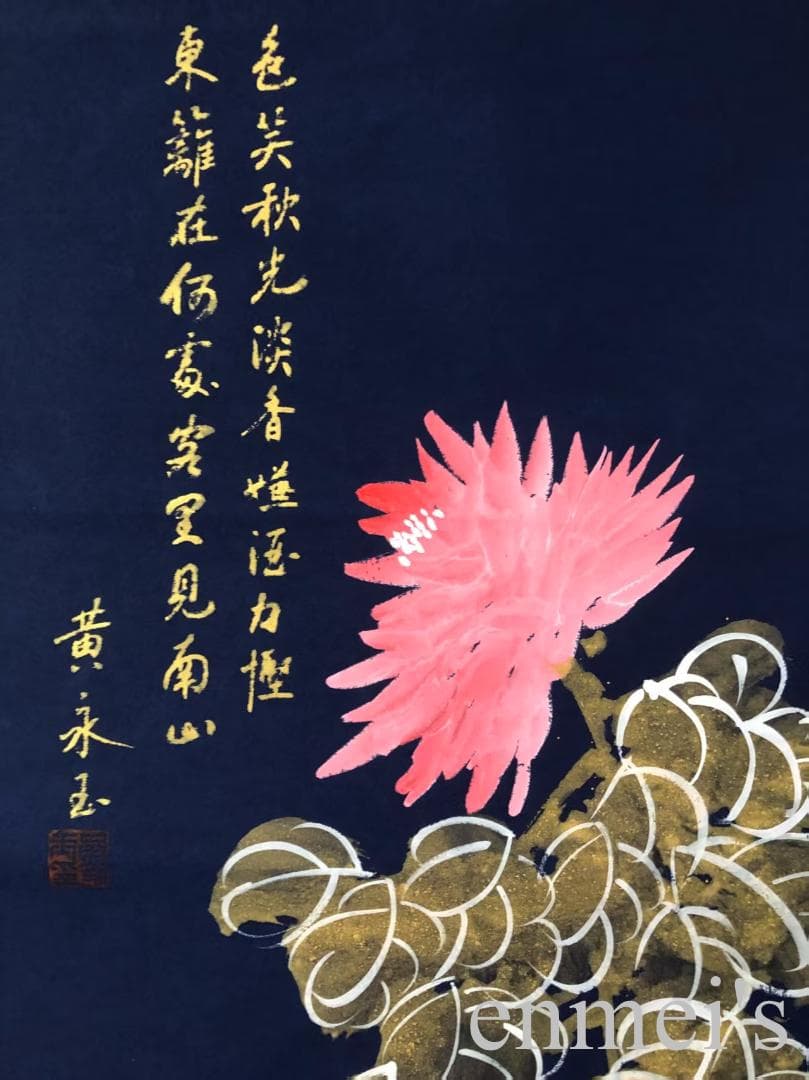 色笑秋光淡香嫌酒力慳
東籬在何處客里見南山
黃永玉
enmei's